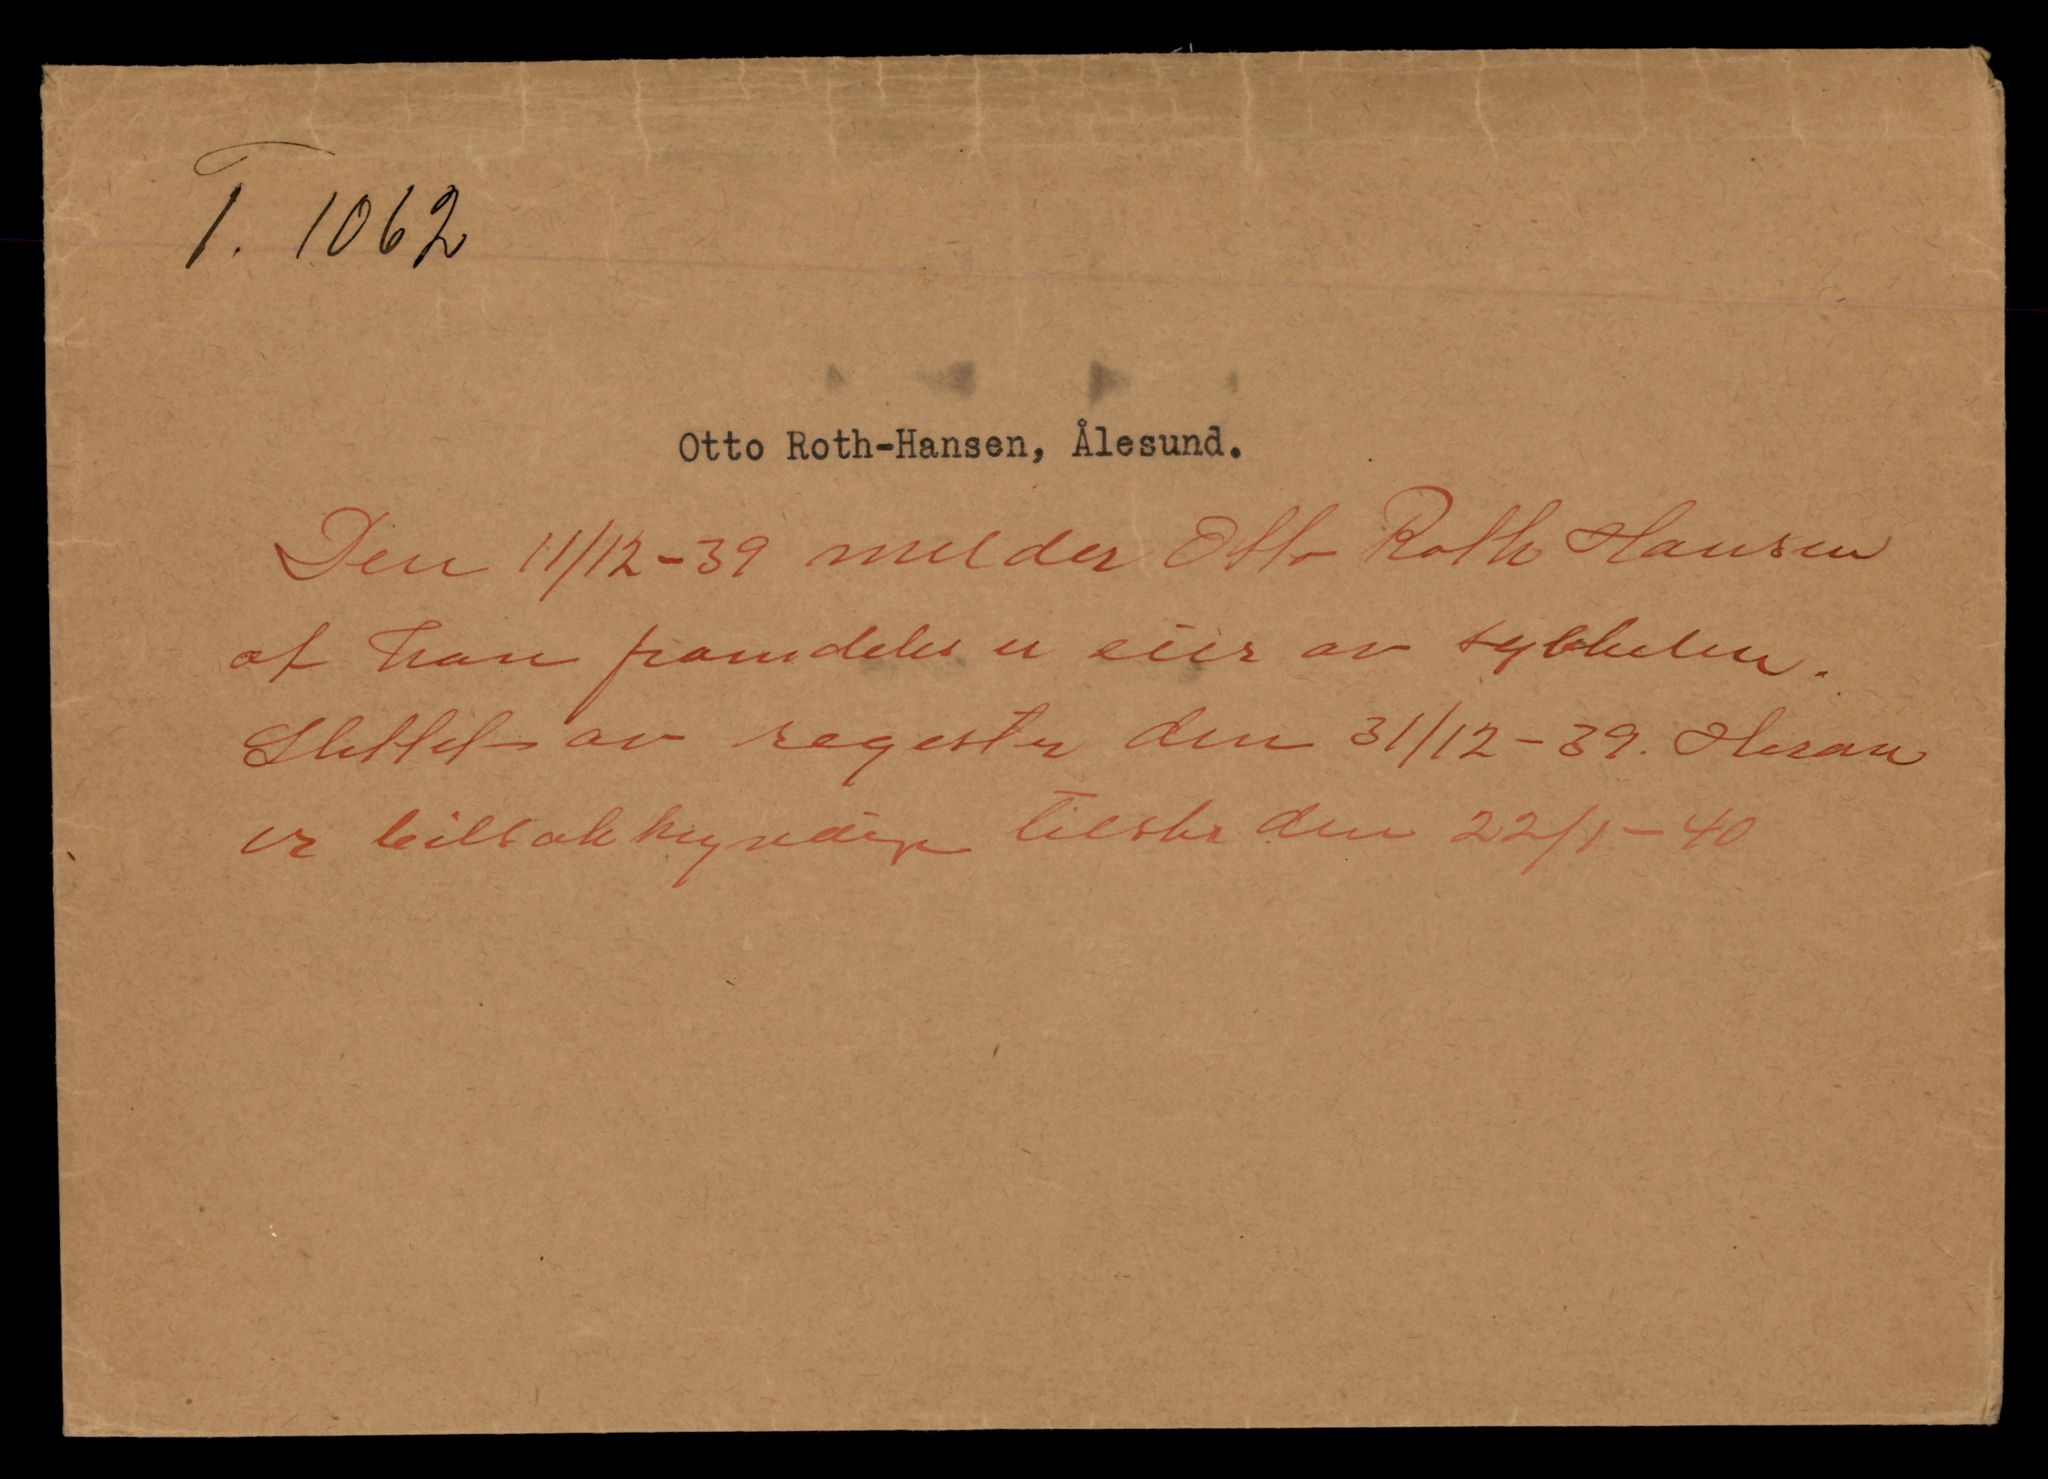 T. 1062
Otto Roth-Hansen, Ålesund.
Den 11/12-39 melder Otto Roth Hansen
at han framdeles er eier av sykkelen.
Slettet av register den 31/12-39. Herom
er bilsakkyndige tilskr den 22/1-40